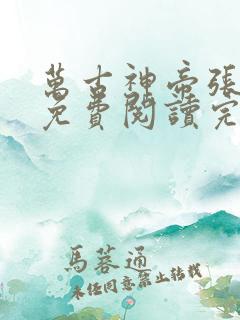 萬古神帝張
免費閱讀完
馬蓉通
未經同意禁止轉載